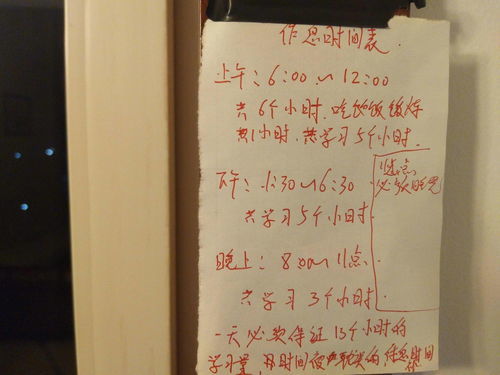 作息时间表.
上午: 6:00~12:00
共6个小时. 吃饭
1小时. 共学习5个小时.
下午: 1:30~6:30
共学习5个小时
11点
必须睡觉
晚上: 8:00~11点
共学习3个小时.
一天必要保证13个小时的
学习量, 时间 作息时间